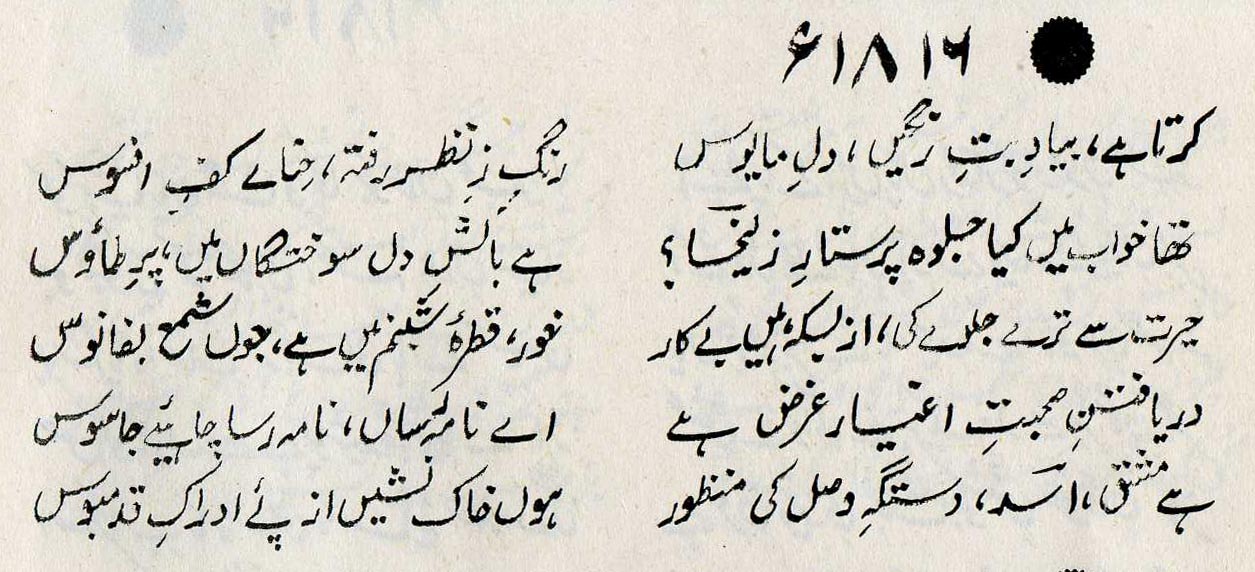 ۱۸۱۶ء
کرتا ہے، بیادِ بتِ رنگیں، دلِ مایوس
رنگِ زِ نظر رفتہ، حنائے کفِ افسوس
تھا خواب میں کیا جلوہ پرستارِ زلیخا؟
ہے بالشِ دل سوختگاں میں، پرِ طاؤس
حیرت سے ترے جلوے کی، از بسکہ، ہیں بے کار
خور، قطرۂ شبنم میں ہے، جوں شمع بفانوس
دریافتنِ صحبتِ اغیار غرض ہے
اے نامہ رساں، نامہ رسا چاہیئے جاسوس
ہے مشق، اسدؔ، دستگہِ وصل کی منظور
ہوں خاک نشیں از پئے ادراکِ قدمبوس